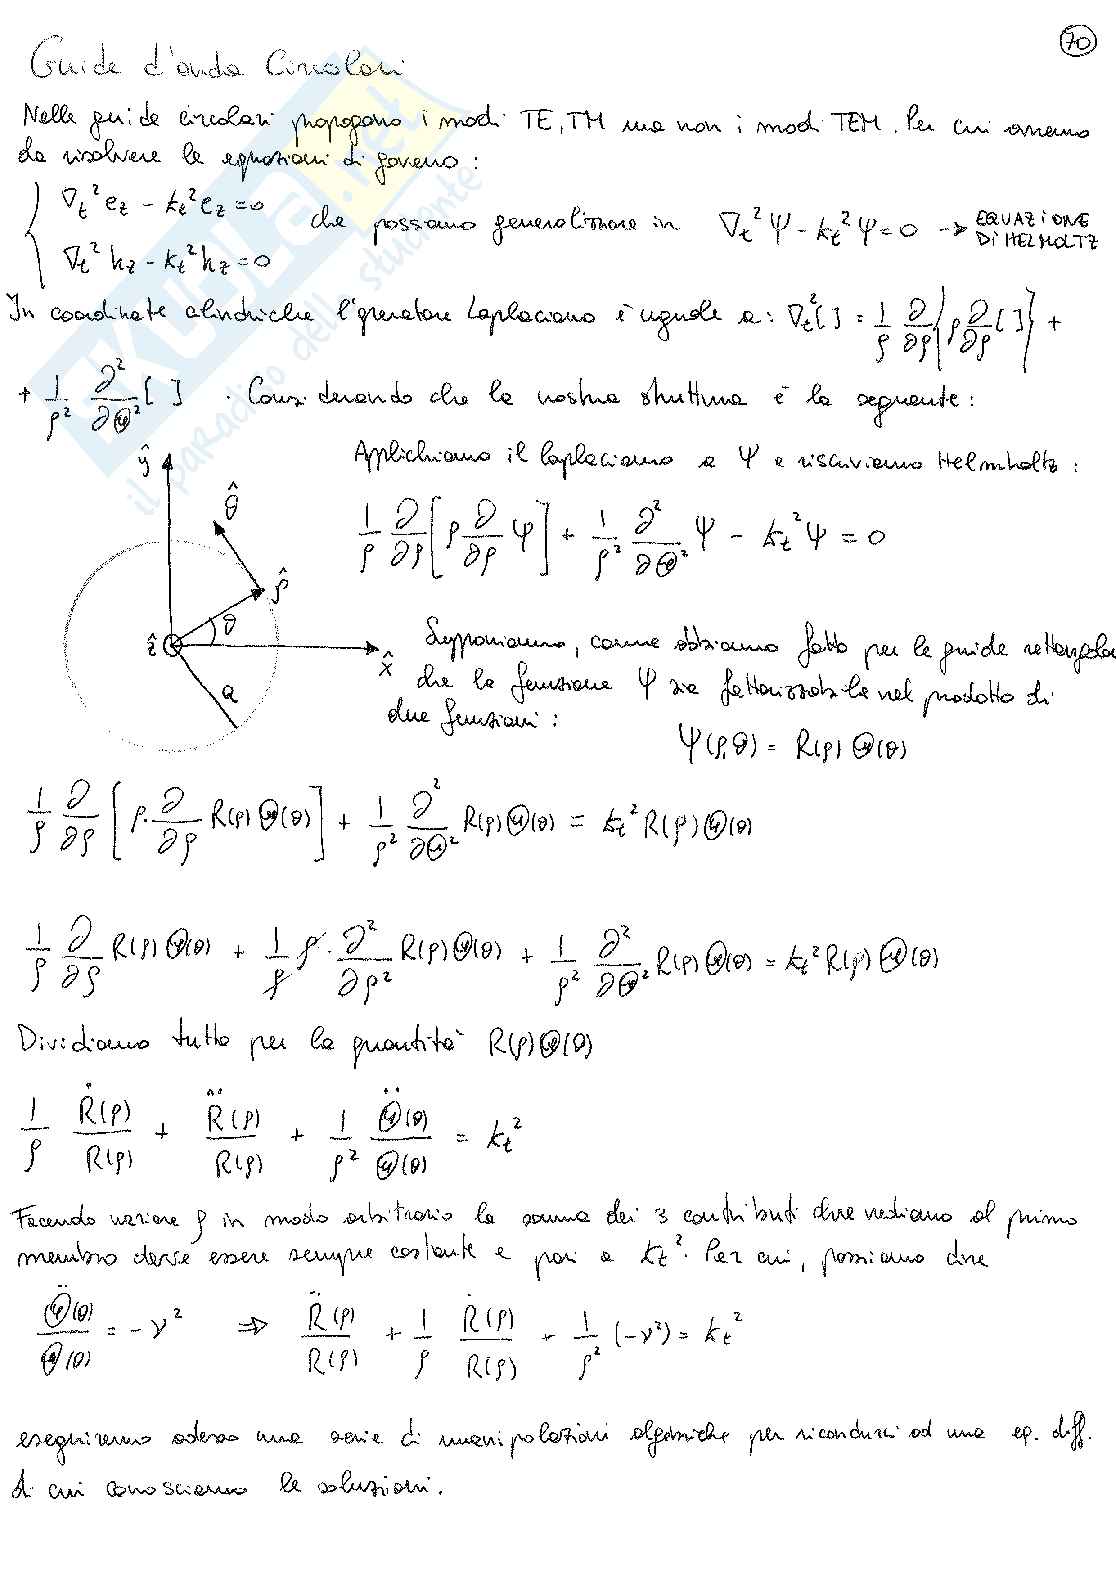 70
Guide d'onda Circolari
Nelle guide circolari propagano i modi TE, TM ma non i modi TEM. Per cui avremo
da risolvere le equazioni di governo:
∇t² ez - kt² ez = 0
∇t² hz - kt² hz = 0
che possiamo generalizzare in ∇t² Ψ - kt² Ψ = 0 → EQUAZIONE DI HELMOLTZ
In coordinate cilindriche l'operatore Laplaciano è uguale a: ∇t²[ ] = 1/ρ ∂/∂ρ {ρ ∂/∂ρ [ ]} +
+ 1/ρ² ∂²/∂Θ² [ ] . Considerando che la nostra struttura è la seguente:
Applichiamo il laplaciano a Ψ e riscriviamo Helmholtz:
1/ρ ∂/∂ρ [ρ ∂/∂ρ Ψ] + 1/ρ² ∂²/∂Θ² Ψ - kt² Ψ = 0
ŷ
θ̂
ρ̂
θ
ẑ
x̂
a
Supponiamo, come abbiamo fatto per le guide rettangolari
che la funzione Ψ sia fattorizzabile nel prodotto di
due funzioni:
Ψ(ρ,θ) = R(ρ) Θ(θ)
1/ρ ∂/∂ρ [ρ · ∂/∂ρ R(ρ) Θ(θ)] + 1/ρ² ∂²/∂Θ² R(ρ) Θ(θ) = kt² R(ρ) Θ(θ)
1/ρ ∂/∂ρ R(ρ) Θ(θ) + 1/ρ ρ · ∂²/∂ρ² R(ρ) Θ(θ) + 1/ρ² ∂²/∂Θ² R(ρ) Θ(θ) = kt² R(ρ) Θ(θ)
Dividiamo tutto per la quantità R(ρ) Θ(θ)
1/ρ Ṙ(ρ)/R(ρ) + R̈(ρ)/R(ρ) + 1/ρ² Θ̈(θ)/Θ(θ) = kt²
Facendo variare ρ in modo arbitrario la somma dei 3 contributi che vediamo al primo
membro deve essere sempre costante e pari a kt². Per cui, possiamo dire
Θ̈(θ)/Θ(θ) = -ν² ⇒ R̈(ρ)/R(ρ) + 1/ρ Ṙ(ρ)/R(ρ) + 1/ρ² (-ν²) = kt²
eseguiremo adesso una serie di manipolazioni algebriche per ricondurci ad una eq. diff.
di cui conosciamo le soluzioni.
KUZA.net
il paradiso dello studente